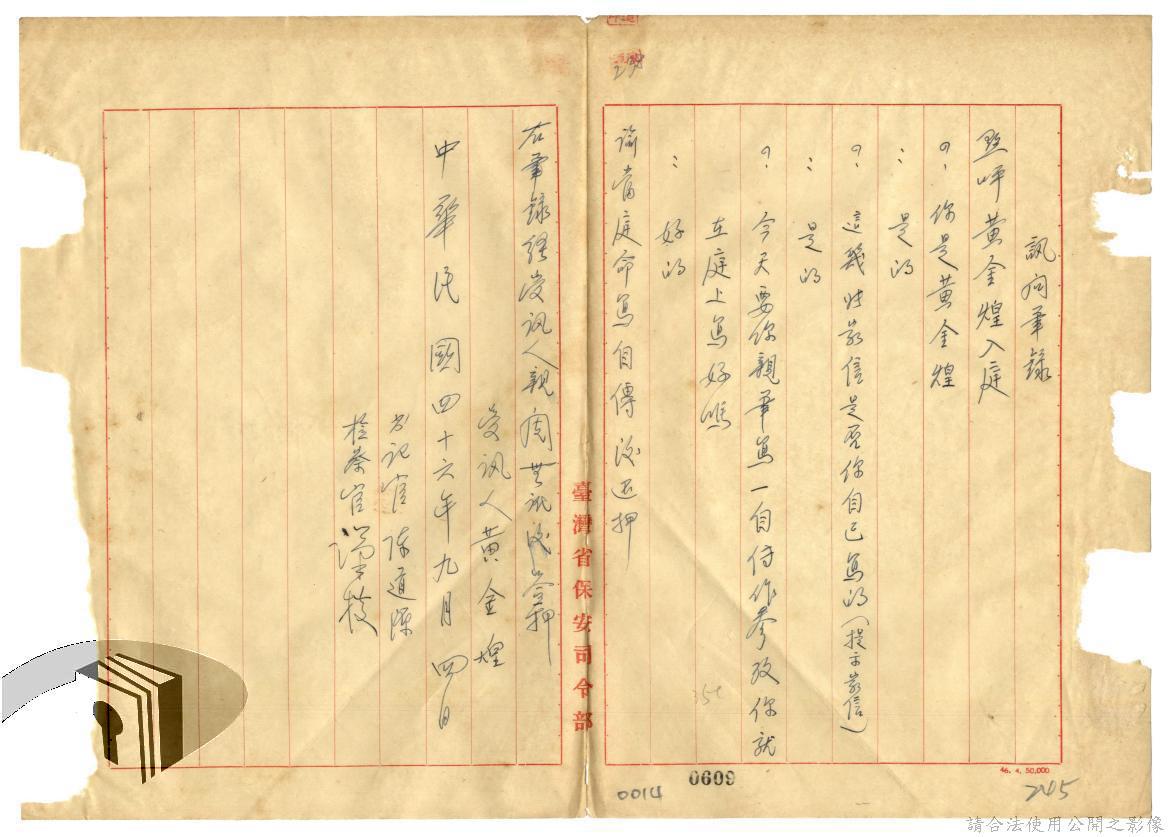 訊問筆錄
點呼黃金煌入庭
?、你是黃金煌
：是的
?、這幾封黃信是否你自己寫的(提示黃信)
：是的
?、今天要你親筆寫一自傳作參攷你就
在庭上寫好嗎
：好的
諭當庭命寫自傳後還押
右筆錄經受訊人親閱無訛後簽押
受訊人黃金煌
中華民國四十六年九月四日
書記官陳道
檢察官
臺灣省保安司令部
46. 4. 50,000
0609
0014
245
請合法使用公開之影像